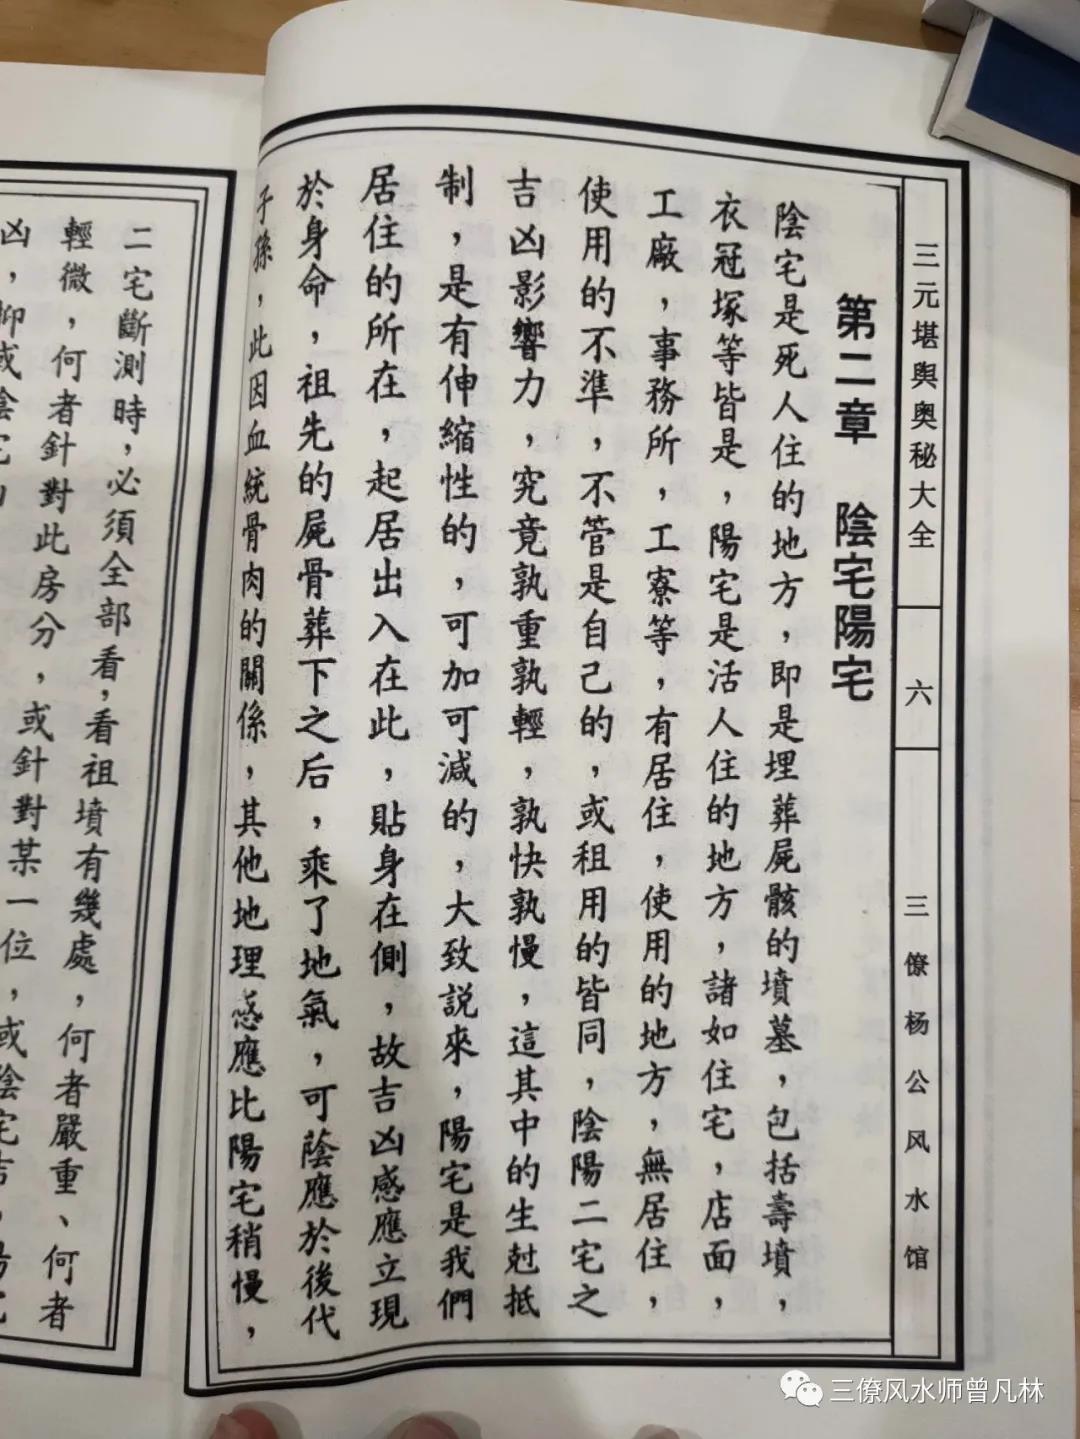 三元堪輿奧秘大全
六
三僚杨公风水馆
第二章 陰宅陽宅
陰宅是死人住的地方，即是埋葬屍骸的墳墓，包括壽墳，
衣冠塚等皆是，陽宅是活人住的地方，諸如住宅，店面，
工廠，事務所，工寮等，有居住，使用的地方，無居住，
使用的不準，不管是自己的，或租用的皆同，陰陽二宅之
吉凶影響力，究竟孰重孰輕，孰快孰慢，這其中的生尅抵
制，是有伸縮性的，可加可減的，大致説來，陽宅是我們
居住的所在，起居出入在此，貼身在側，故吉凶感應立現
於身命，祖先的屍骨葬下之后，乘了地氣，可蔭應於後代
子孫，此因血統骨肉的關係，其他地理感應比陽宅稍慢，
二宅斷測時，必須全部看，看祖墳有幾處，何者嚴重、何者
輕微，何者針對此房分，或針對某一位，或陰宅吉，陽宅
凶，抑或陰宅
三僚风水师曾凡林